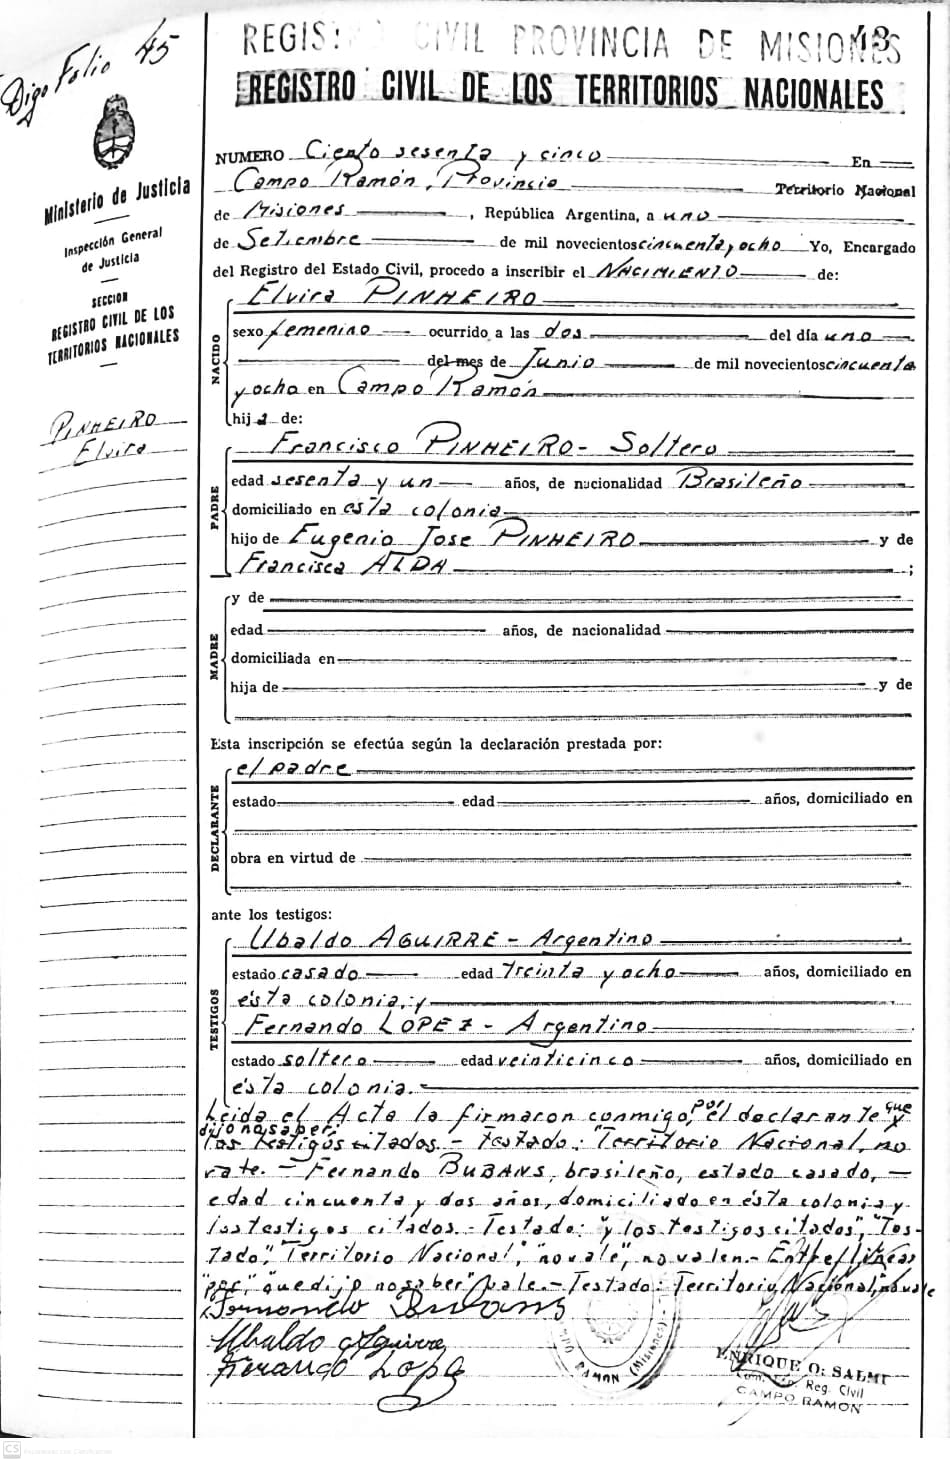 Digo Folio 45
REGISTRO CIVIL PROVINCIA DE MISIONES
43
REGISTRO CIVIL DE LOS TERRITORIOS NACIONALES
Ministerio de Justicia
Inspección General
de Justicia
SECCION
REGISTRO CIVIL DE LOS
TERRITORIOS NACIONALES
PINHEIRO
Elvira
NUMERO Ciento sesenta y cinco En
Campo Ramón, Provincia Territorio Nacional
de Misiones, República Argentina, a uno
de Setiembre de mil novecientos cincuenta y ocho Yo, Encargado
del Registro del Estado Civil, procedo a inscribir el NACIMIENTO de:
NACIDO
Elvira PINHEIRO
sexo femenino ocurrido a las dos del día uno
del mes de Junio de mil novecientos cincuenta
y ocho en Campo Ramón
hija de:
PADRE
Francisco PINHEIRO - Soltero
edad sesenta y un años, de nacionalidad Brasileño
domiciliado en esta colonia
hijo de Eugenio Jose PINHEIRO y de
Francisca ALDA;
MADRE
y de
edad años, de nacionalidad
domiciliada en
hija de y de
Esta inscripción se efectúa según la declaración prestada por:
DECLARANTE
el padre
estado edad años, domiciliado en
obra en virtud de
ante los testigos:
TESTIGOS
Ubaldo AGUIRRE - Argentino
estado casado edad treinta y ocho años, domiciliado en
ésta colonia, y
Fernando LOPEZ - Argentino
estado soltero edad veinticinco años, domiciliado en
ésta colonia.
Leida el Acta la firmaron conmigo, por el declarante que y
dijo no saber,
los testigos citados. - Testado: "Territorio Nacional, no
vale. - Fernando BUBANS, brasileño, estado casado, -
edad cincuenta y dos años, domiciliado en ésta colonia y
los testigos citados. - Testado: "y los testigos citados", "Tes-
tado", "Territorio Nacional", "no vale", no valen. - Entrelineas
"por", "que dijo no saber" vale. - Testado: Territorio Nacional, no vale
Fernando Bubans
Ubaldo Aguirre
Fernando Lopez
CAMPO RAMON (Misiones)
ENRIQUE O. SALMI
Reg. Civil
CAMPO RAMON
CS